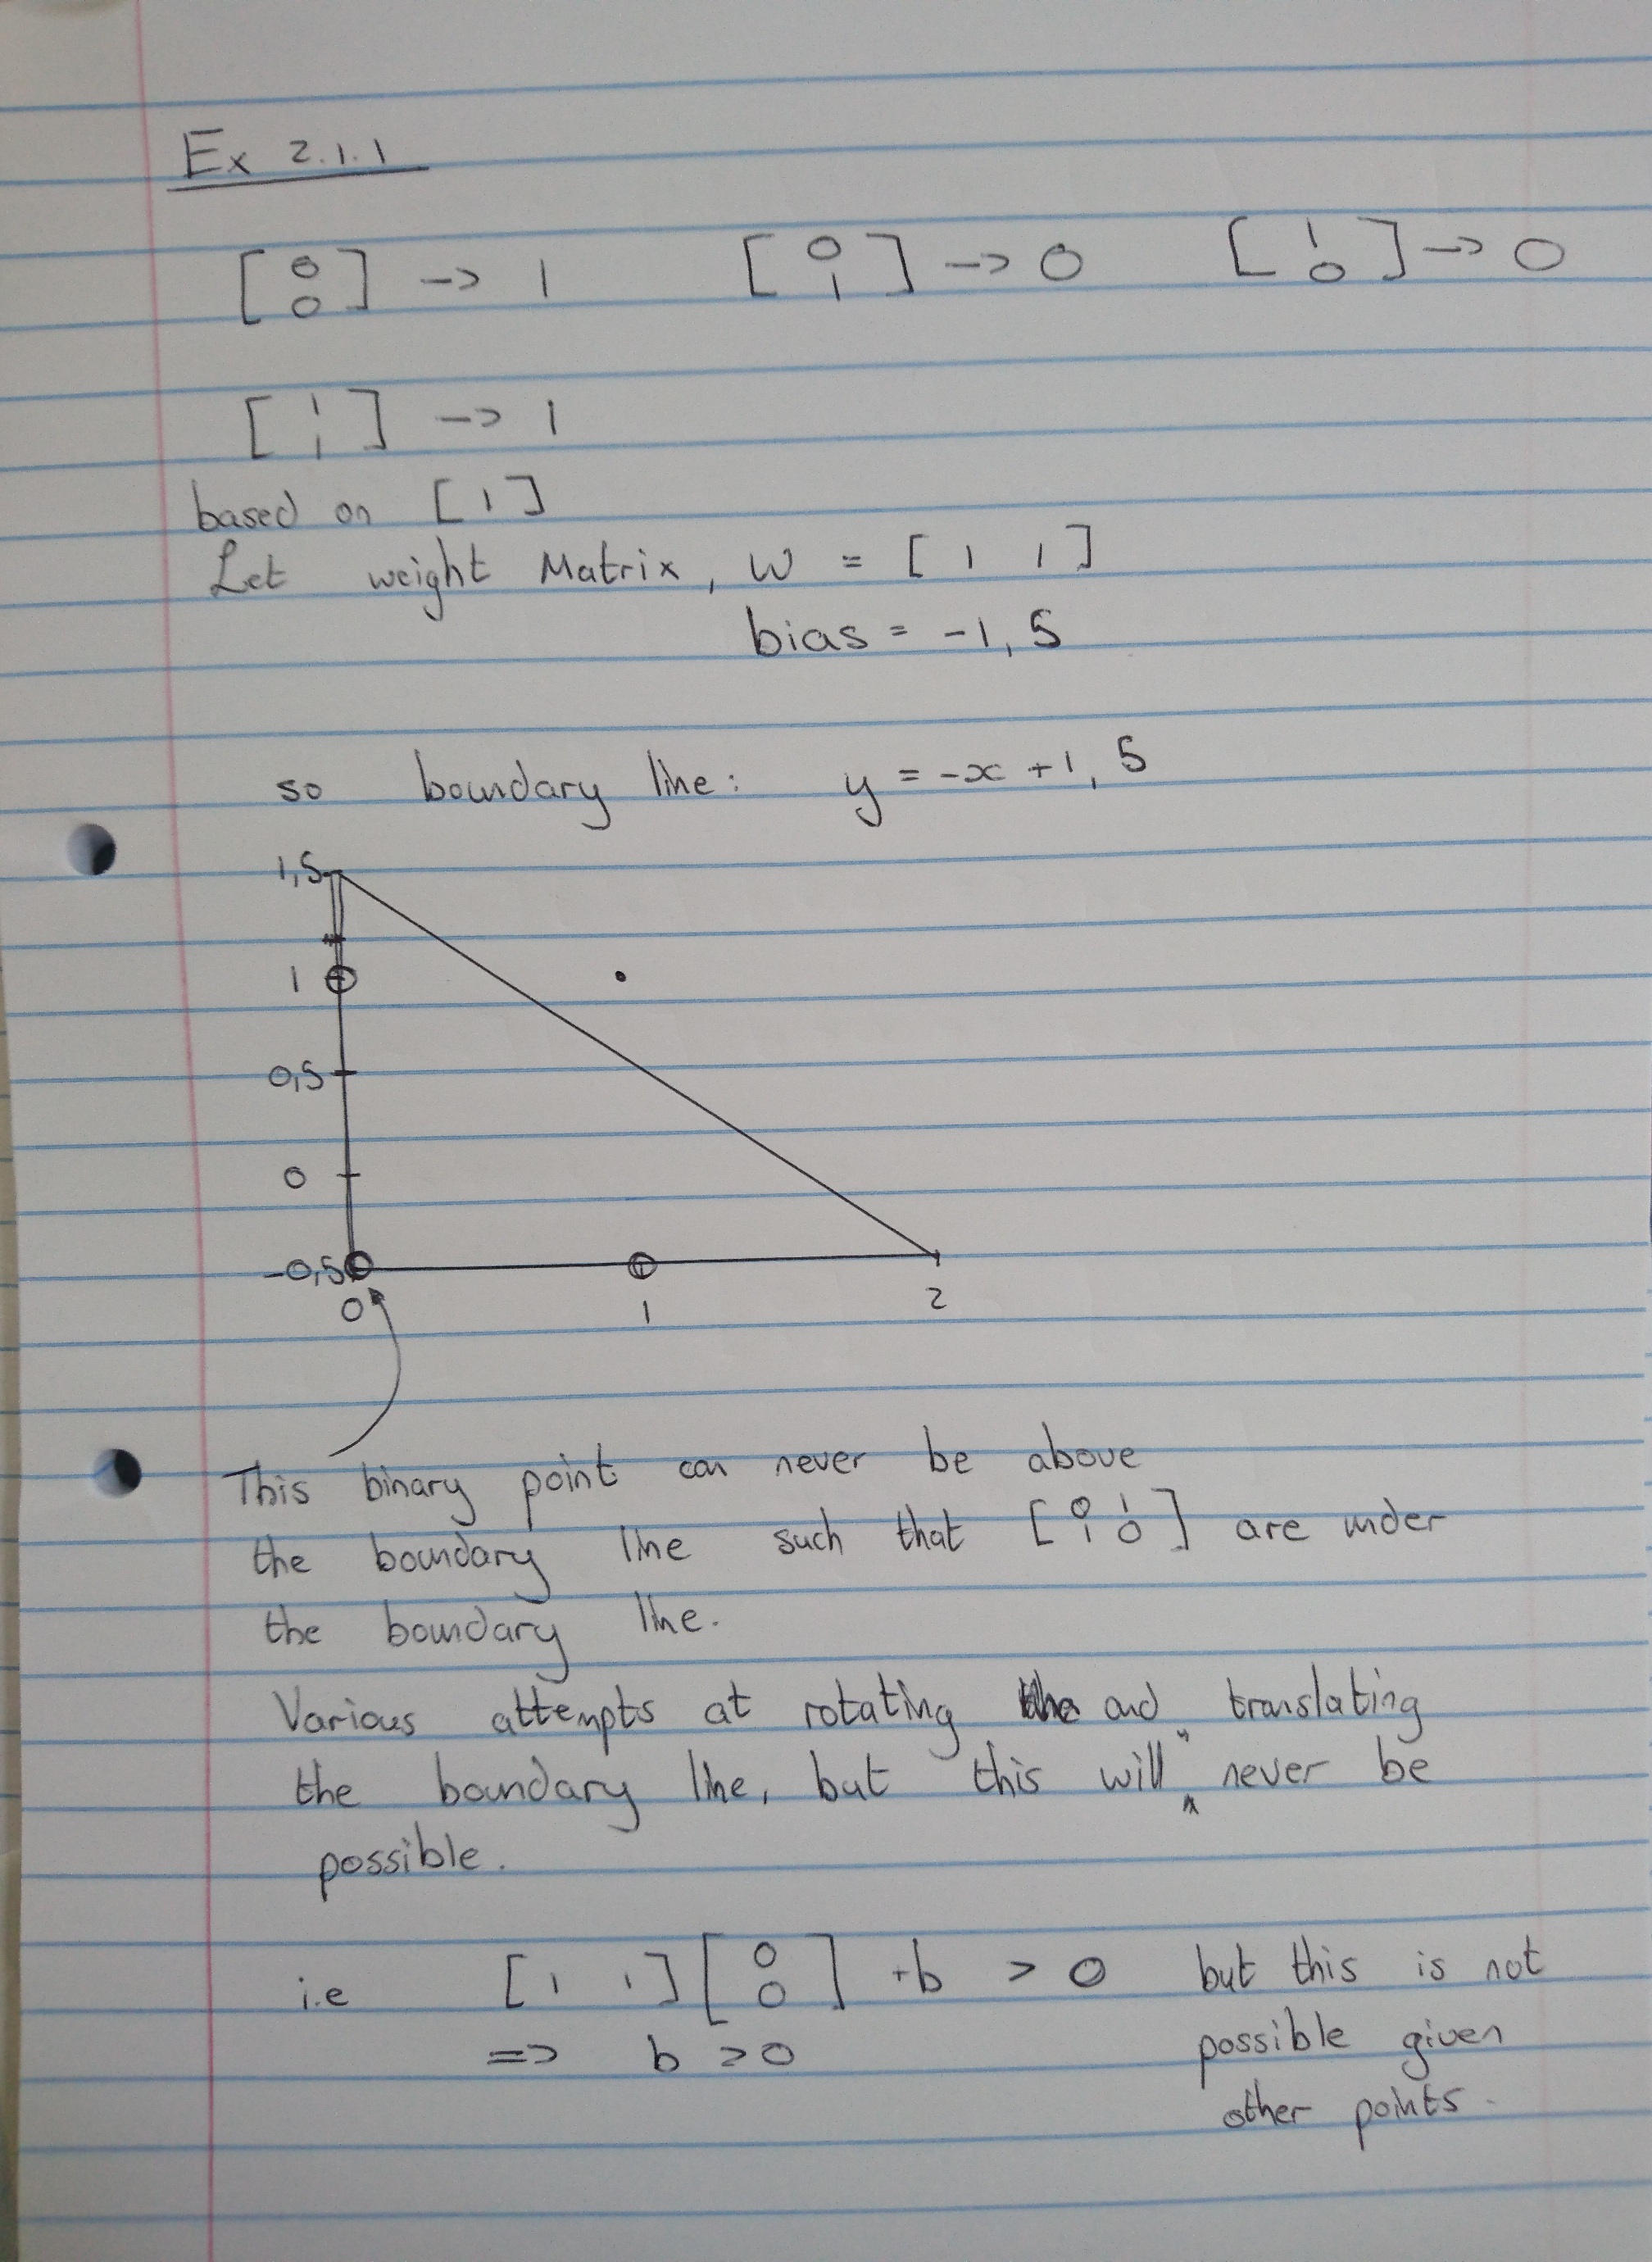 Ex 2.1.1
[0 0] -> 1 [0 1] -> 0 [1 0] -> 0
[1 1] -> 1
based on [1]
Let weight Matrix, W = [1 1]
bias = -1,5
so boundary line: y = -x +1,5
1,5
1
0,5
0
-0,5
0 1 2
This binary point can never be above
the boundary line such that [0 1 1 0] are under
the boundary line.
Various attempts at rotating and translating
the boundary line, but this will " never be
possible.
i.e [1 1][0 0] +b > 0 but this is not
=> b >0 possible given
other points.